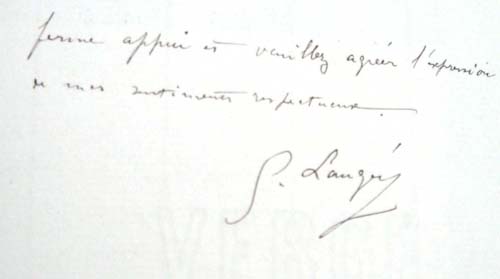 ferme appui et veuillez agréer l'expression
de mes sentiments respectueux.